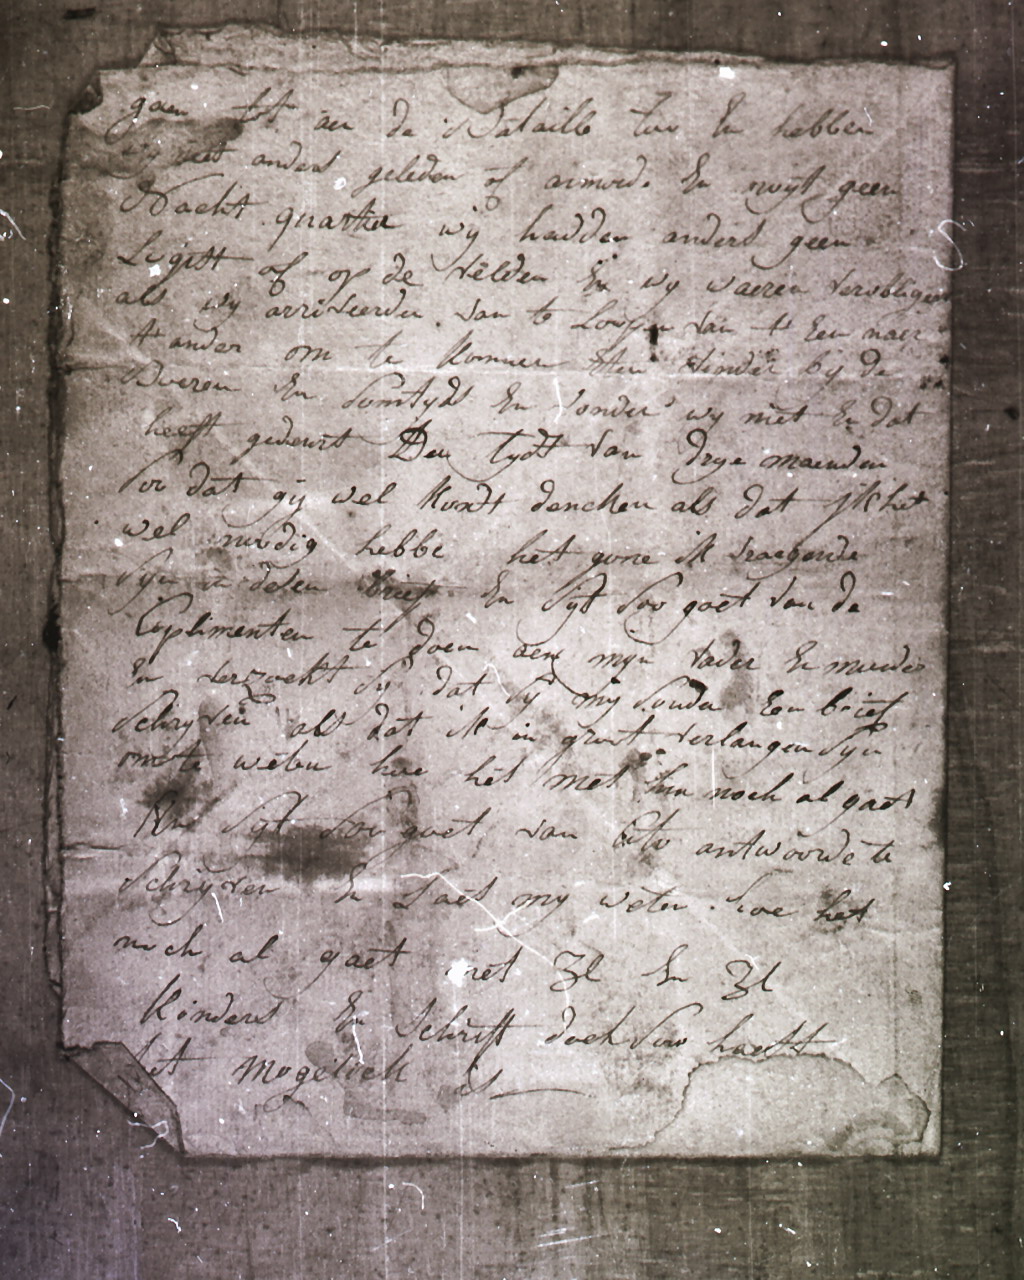 gaen tot aen de Bataille toe En hebben
wy niet anders geleden of armoed. En noyt geen
Nacht quartier wy hadden anders geen
Ligstt of op de velden En wy waeren vervoligen
als wy arriveerden. van te Loopen van t Een naer
t ander om te komen bij de
Boeren En Somtyds En vonden wy niet En dat
heeft geduert Den tydt van drye maenden
Soo dat gij wel kondt dencken als dat Ik het
wel noodig hebbe het gone ik vraegende
Syn in desen brief En Syt Soo goet van de
Complimenten te doen aen myn vader En moeder
En versoekt Sy dat Sy my Souden Een brief
Schryven als dat ik in groot verlangen Syn
om te weten hoe het met hun noch al gaet
Syt Soo goet van antwoorde te
Schryven En Laet my weten hoe het
noch al gaet met Zl En Zl
Kinders En Schrift doch Soo haest
het Mogelock is